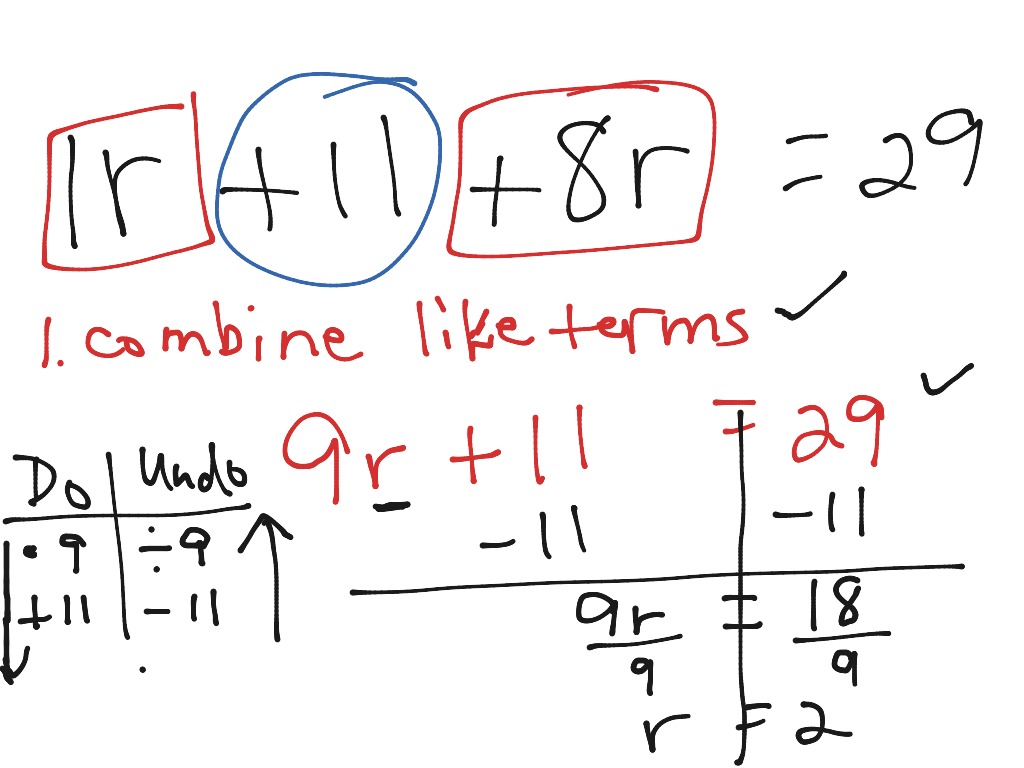 1r + 11 + 8r = 29
1. combine like terms ✓
9r + 11 = 29 ✓
-11 -11
9r/9 = 18/9
r = 2
Do Undo
· 9 ÷ 9
+ 11 - 11